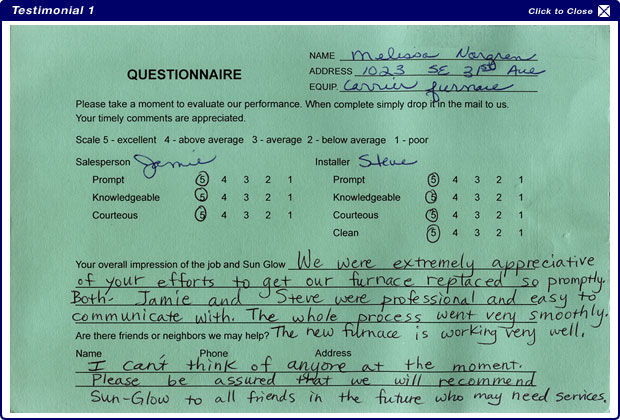 Testimonial 1
Click to Close
NAME Melissa Norgren
ADDRESS 1023 SE 31st Ave
EQUIP. Carrier furnace
QUESTIONNAIRE
Please take a moment to evaluate our performance. When complete simply drop it in the mail to us.
Your timely comments are appreciated.
Scale 5 - excellent 4 - above average 3 - average 2 - below average 1 - poor
Salesperson Jamie Installer Steve
Prompt 5 4 3 2 1 Prompt 5 4 3 2 1
Knowledgeable 5 4 3 2 1 Knowledgeable 5 4 3 2 1
Courteous 5 4 3 2 1 Courteous 5 4 3 2 1
Clean 5 4 3 2 1
Your overall impression of the job and Sun Glow We were extremely appreciative
of your efforts to get our furnace replaced so promptly.
Both Jamie and Steve were professional and easy to
communicate with. The whole process went very smoothly.
Are there friends or neighbors we may help? The new furnace is working very well.
Name Phone Address
I can't think of anyone at the moment.
Please be assured that we will recommend
Sun-Glow to all friends in the future who may need services.